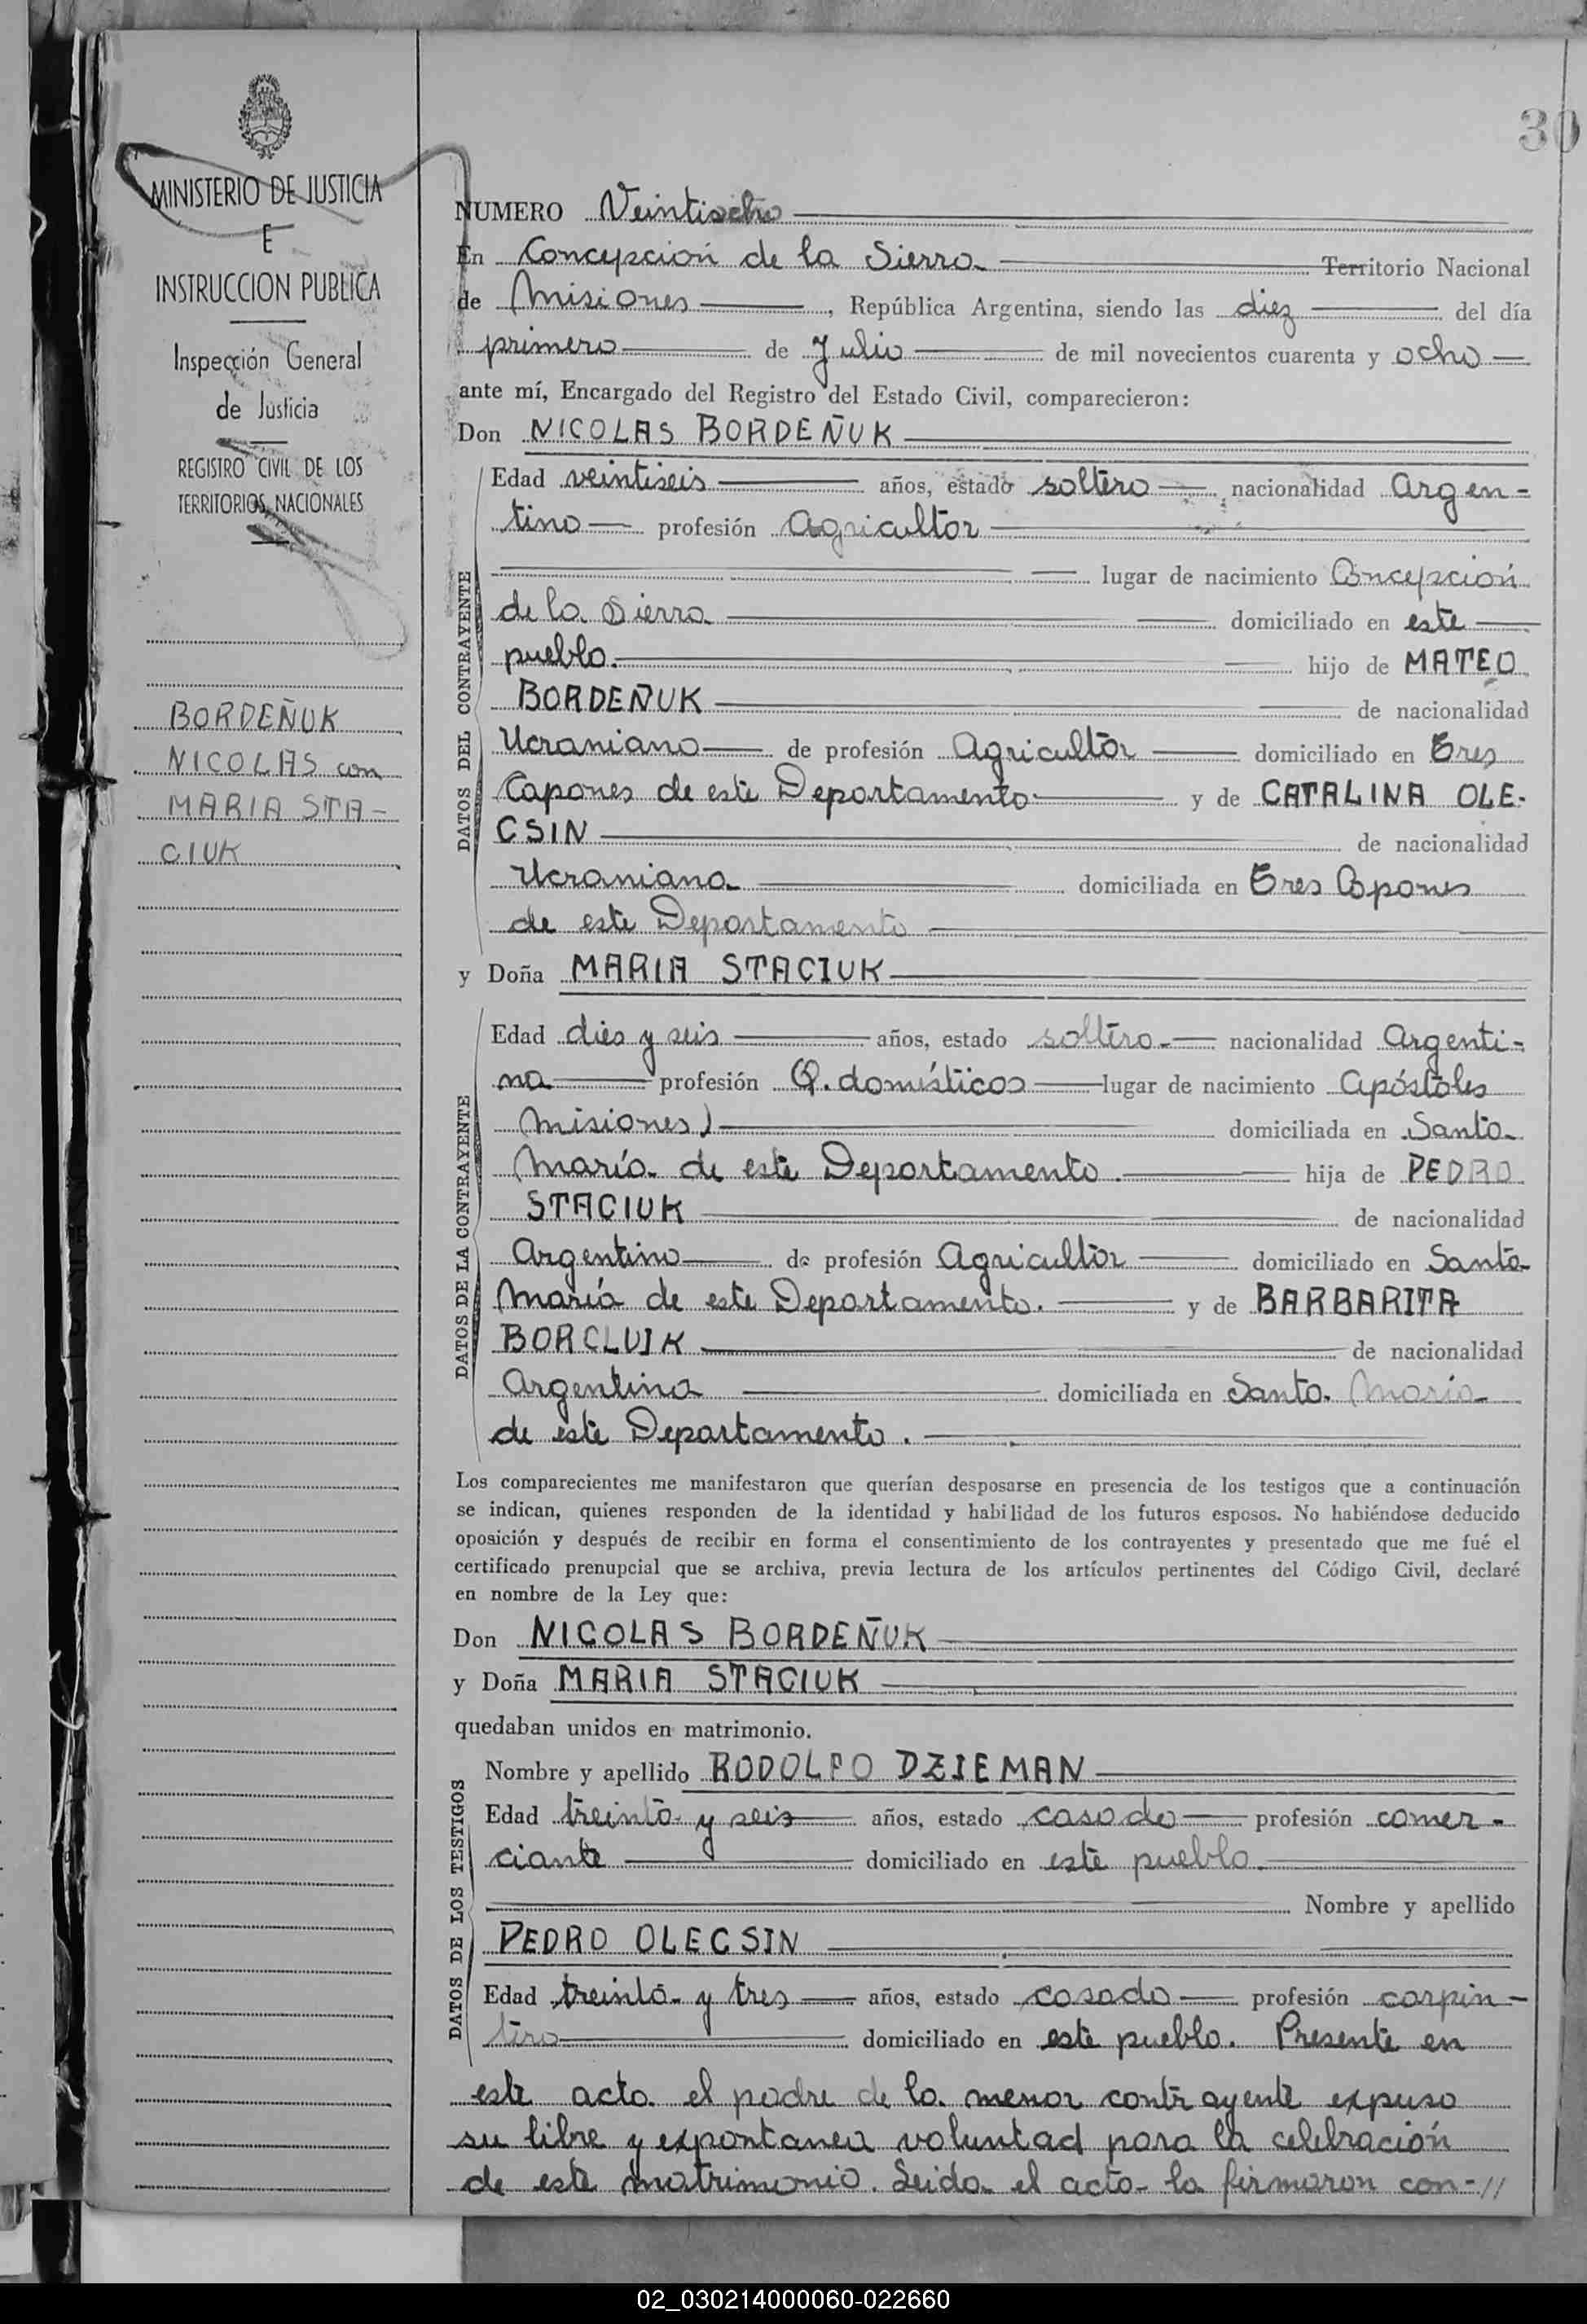 30
MINISTERIO DE JUSTICIA
E
INSTRUCCION PUBLICA
Inspección General
de Justicia
REGISTRO CIVIL DE LOS
TERRITORIOS NACIONALES
BORDEÑUK
NICOLAS con
MARIA STA-
CIUK
NUMERO Veintiocho
En Concepción de la Sierra Territorio Nacional
de Misiones, República Argentina, siendo las diez del día
primero de Julio de mil novecientos cuarenta y ocho
ante mí, Encargado del Registro del Estado Civil, comparecieron:
Don NICOLAS BORDEÑUK
DATOS DEL CONTRAYENTE
Edad veintiseis años, estado soltero nacionalidad Argen-
tino profesión Agricultor
lugar de nacimiento Concepción
de la Sierra domiciliado en este
pueblo. hijo de MATEO
BORDEÑUK de nacionalidad
Ucraniano de profesión Agricultor domiciliado en Tres
Capones de este Departamento y de CATALINA OLE-
CSIN de nacionalidad
Ucraniana domiciliada en Tres Capones
de este Departamento
y Doña MARIA STACIUK
DATOS DE LA CONTRAYENTE
Edad dies y seis años, estado soltera nacionalidad Argenti-
na profesión Q. domésticos lugar de nacimiento Apóstoles
Misiones) domiciliada en Santa
María de este Departamento. hija de PEDRO
STACIUK de nacionalidad
Argentino de profesión Agricultor domiciliado en Santa
María de este Departamento. y de BARBARITA
BORCLUIK de nacionalidad
Argentina domiciliada en Santa María
de este Departamento.
Los comparecientes me manifestaron que querían desposarse en presencia de los testigos que a continuación
se indican, quienes responden de la identidad y habilidad de los futuros esposos. No habiéndose deducido
oposición y después de recibir en forma el consentimiento de los contrayentes y presentado que me fué el
certificado prenupcial que se archiva, previa lectura de los artículos pertinentes del Código Civil, declaré
en nombre de la Ley que:
Don NICOLAS BORDEÑUK
y Doña MARIA STACIUK
quedaban unidos en matrimonio.
DATOS DE LOS TESTIGOS
Nombre y apellido RODOLFO DZIEMAN
Edad treinta y seis años, estado casado profesión comer-
ciante domiciliado en este pueblo.
Nombre y apellido
PEDRO OLECSIN
Edad treinta y tres años, estado casado profesión carpin-
tero domiciliado en este pueblo. Presente en
este acto el padre de la menor contrayente expuso
su libre y expontanea voluntad para la celebración
de este matrimonio. Leida el acta la firmaron con-//
02_030214000060-022660